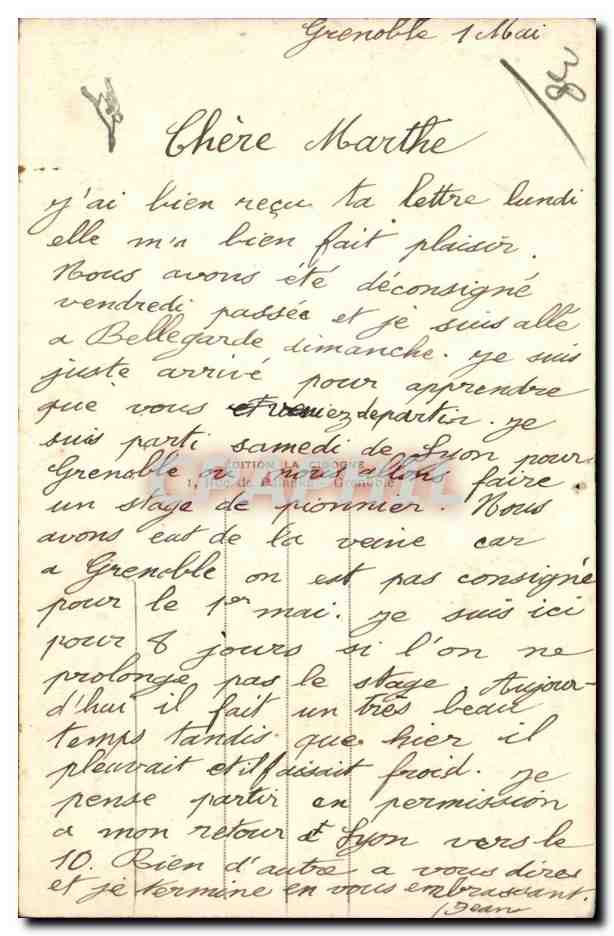 Grenoble 1 Mai
Chère Marthe
j'ai bien reçu ta lettre lundi
elle m'a bien fait plaisir.
Nous avons été déconsigné
vendredi passée et je suis allé
a Bellegarde dimanche. je suis
juste arrivé pour apprendre
que vous veniez de partir. je
suis parti samedi de Lyon pour
Grenoble nous allons faire
EDITION LA CIGOGNE
Grenoble
CPAPHIL
un stage de pionnier. Nous
avons eut de la veine car
a Grenoble on est pas consigné
pour le 1er mai. je suis ici
pour 8 jours si l'on ne
prolonge pas le stage. Aujour-
d'hui il fait un très beau
temps tandis que hier il
pleuvait et il faisait froid. je
pense partir en permission
a mon retour at Lyon vers le
10. Rien d'autre a vous dires
et je termine en vous embrassant.
Jean